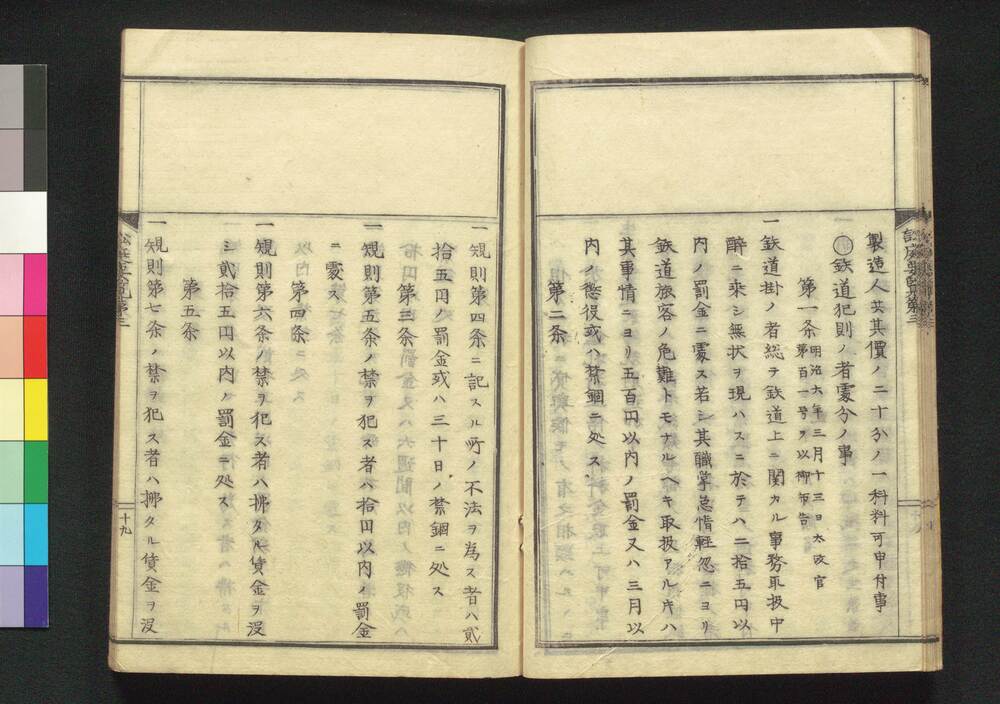 製造人共其價ノ二十分ノ一科料可申付事
鉄道犯則ノ者處分ノ事
第一条 明治六年三月十三日太政官
第百一号ヲ以御布告
一鉄道掛ノ者総テ鉄道上ニ関カル事務取扱中
酔ニ乘シ無状ヲ現ハスニ於テハ二拾五円以
内ノ罰金ニ處ス若シ其職掌怠惰軽忽ニヨリ
鉄道旅客ノ危難トモナルヘキ取扱アルキハ
其事情ニヨリ五百円以内ノ罰金又ハ三月以
内ノ懲役或ハ禁錮ニ処ス
第二条
一規則第四条ニ記スル所ノ不法ヲ為ス者ハ貳
拾五円ノ罰金或ハ三十日ノ禁錮ニ処ス
第三条
一規則第五条ノ禁ヲ犯ス者ハ拾円以内ノ罰金
ニ處ス
第四条
一規則第六条ノ禁ヲ犯ス者ハ拂タル賃金ヲ没
シ貳拾五円以内ノ罰金ニ処ス
第五条
一規則第七条ノ禁ヲ犯ス者ハ拂タル賃金ヲ没
十九